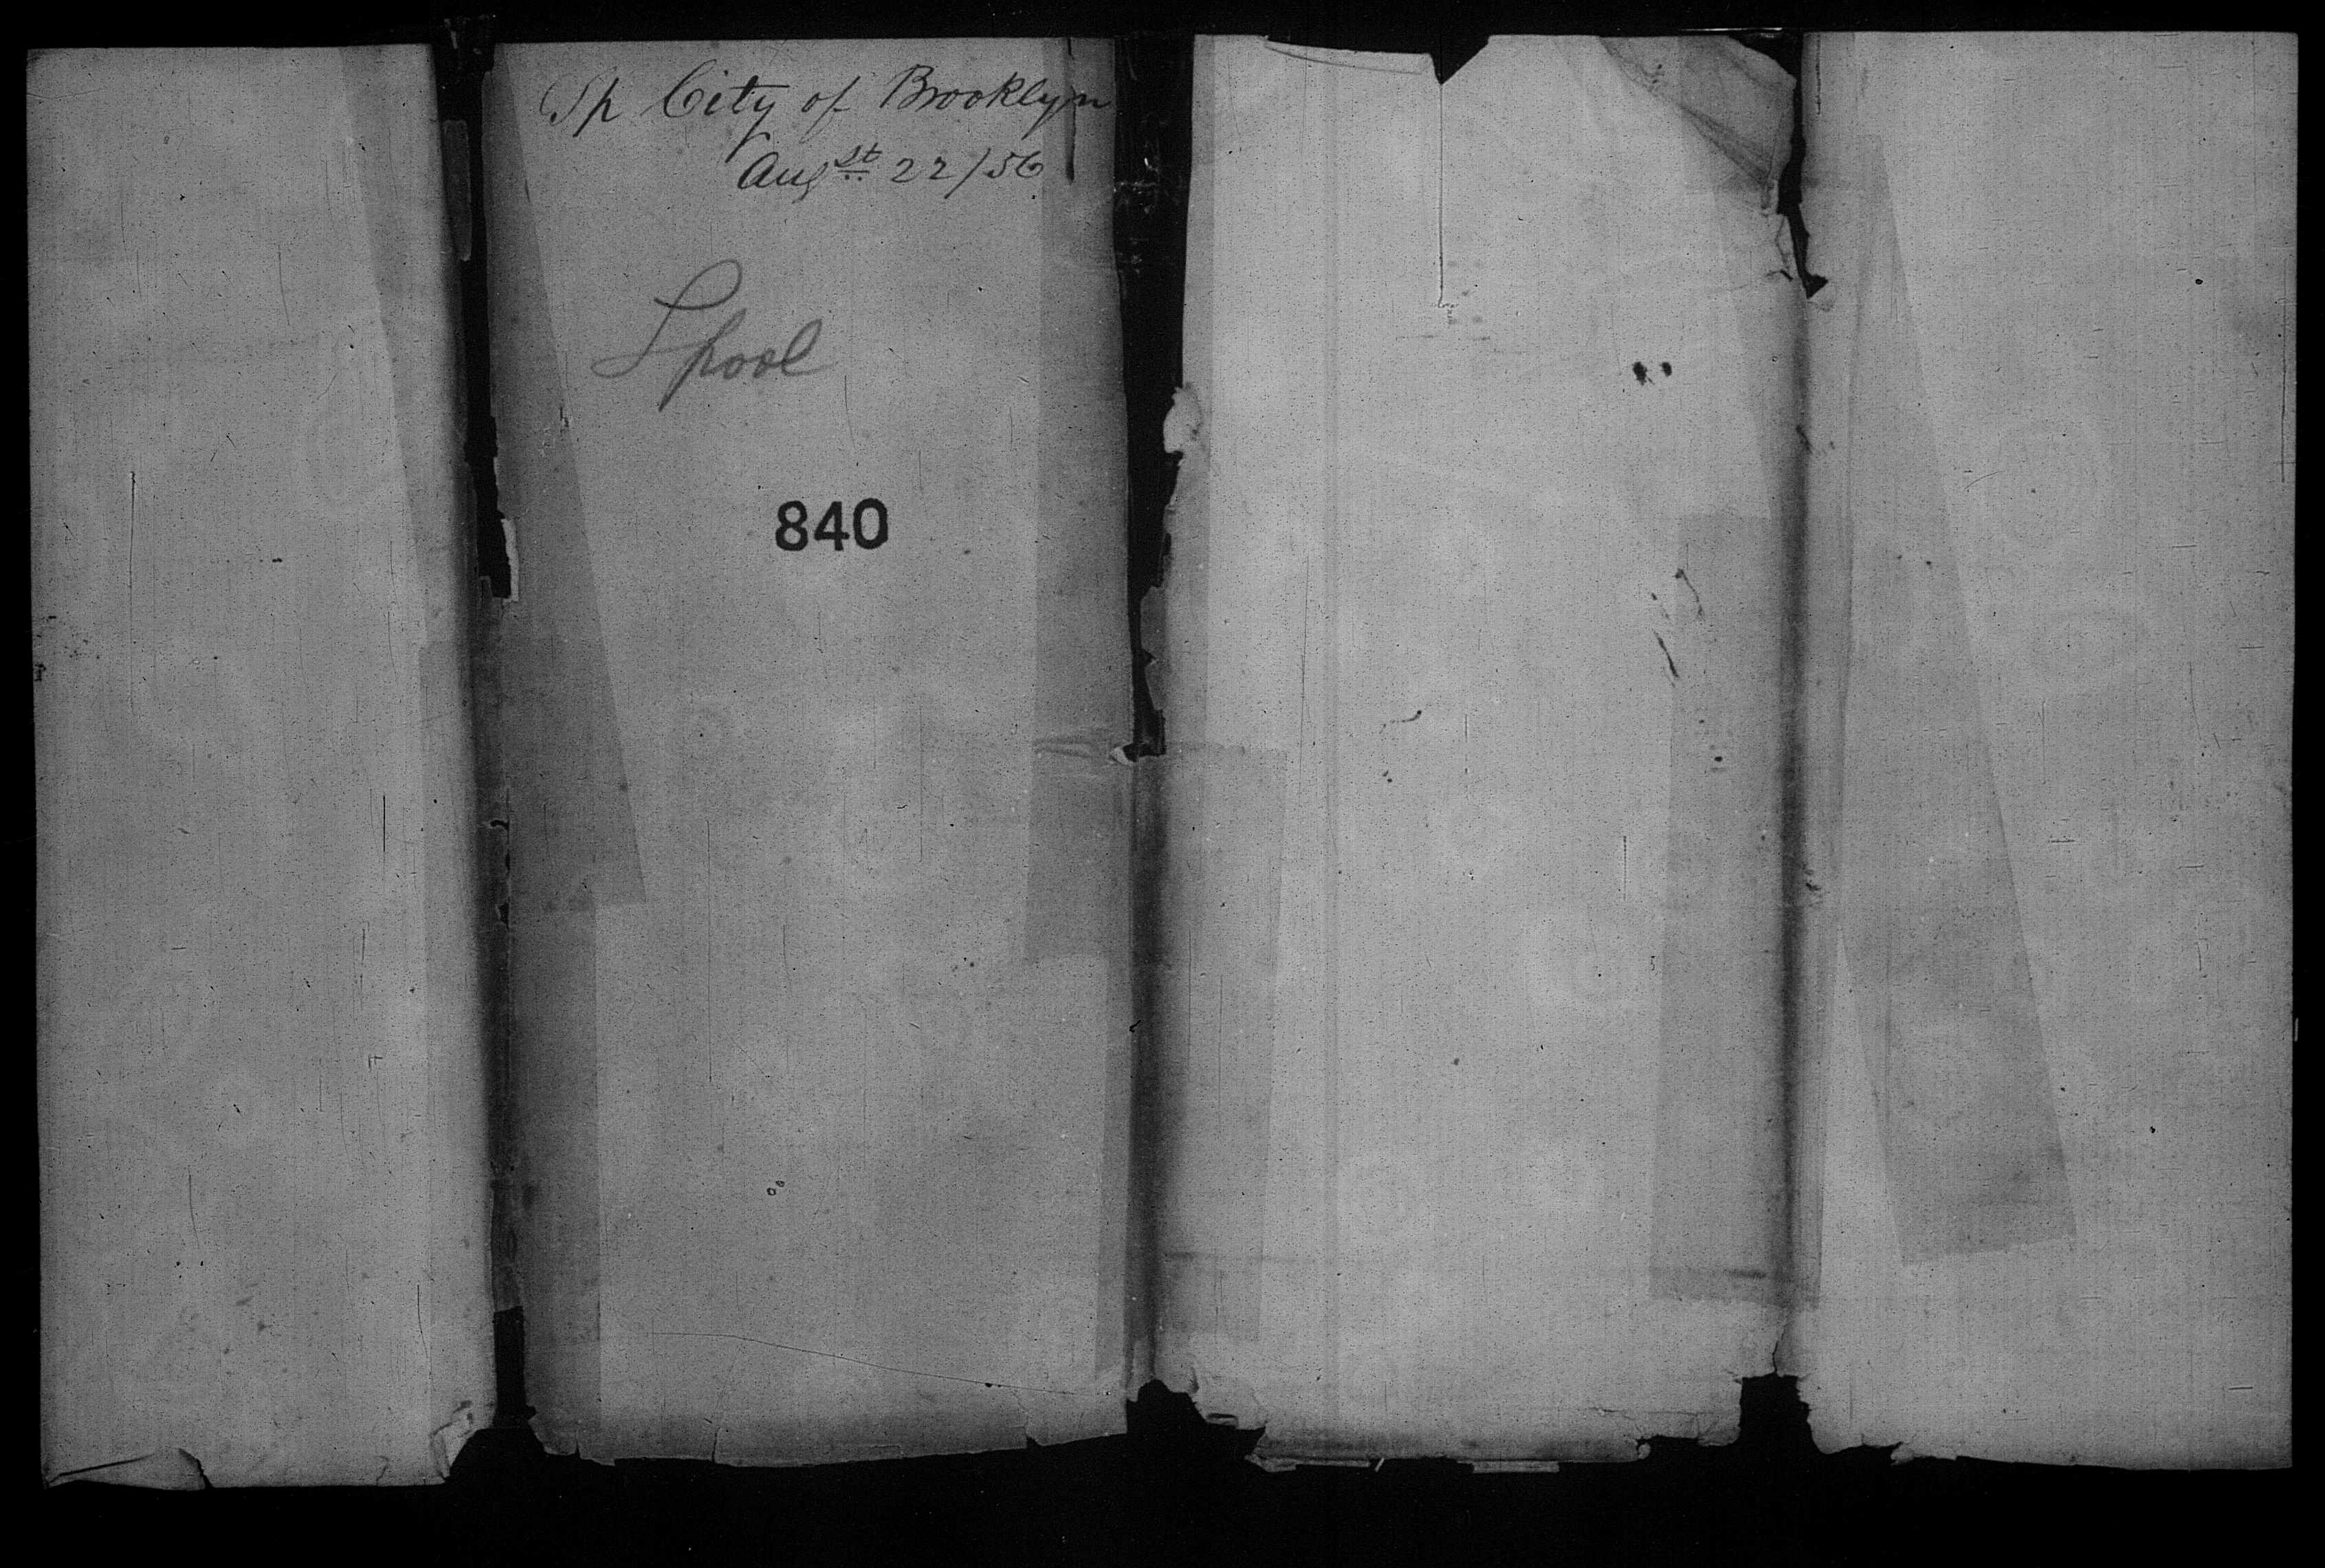 Sp City of Brooklyn
Augst 22/56
Lpool
840